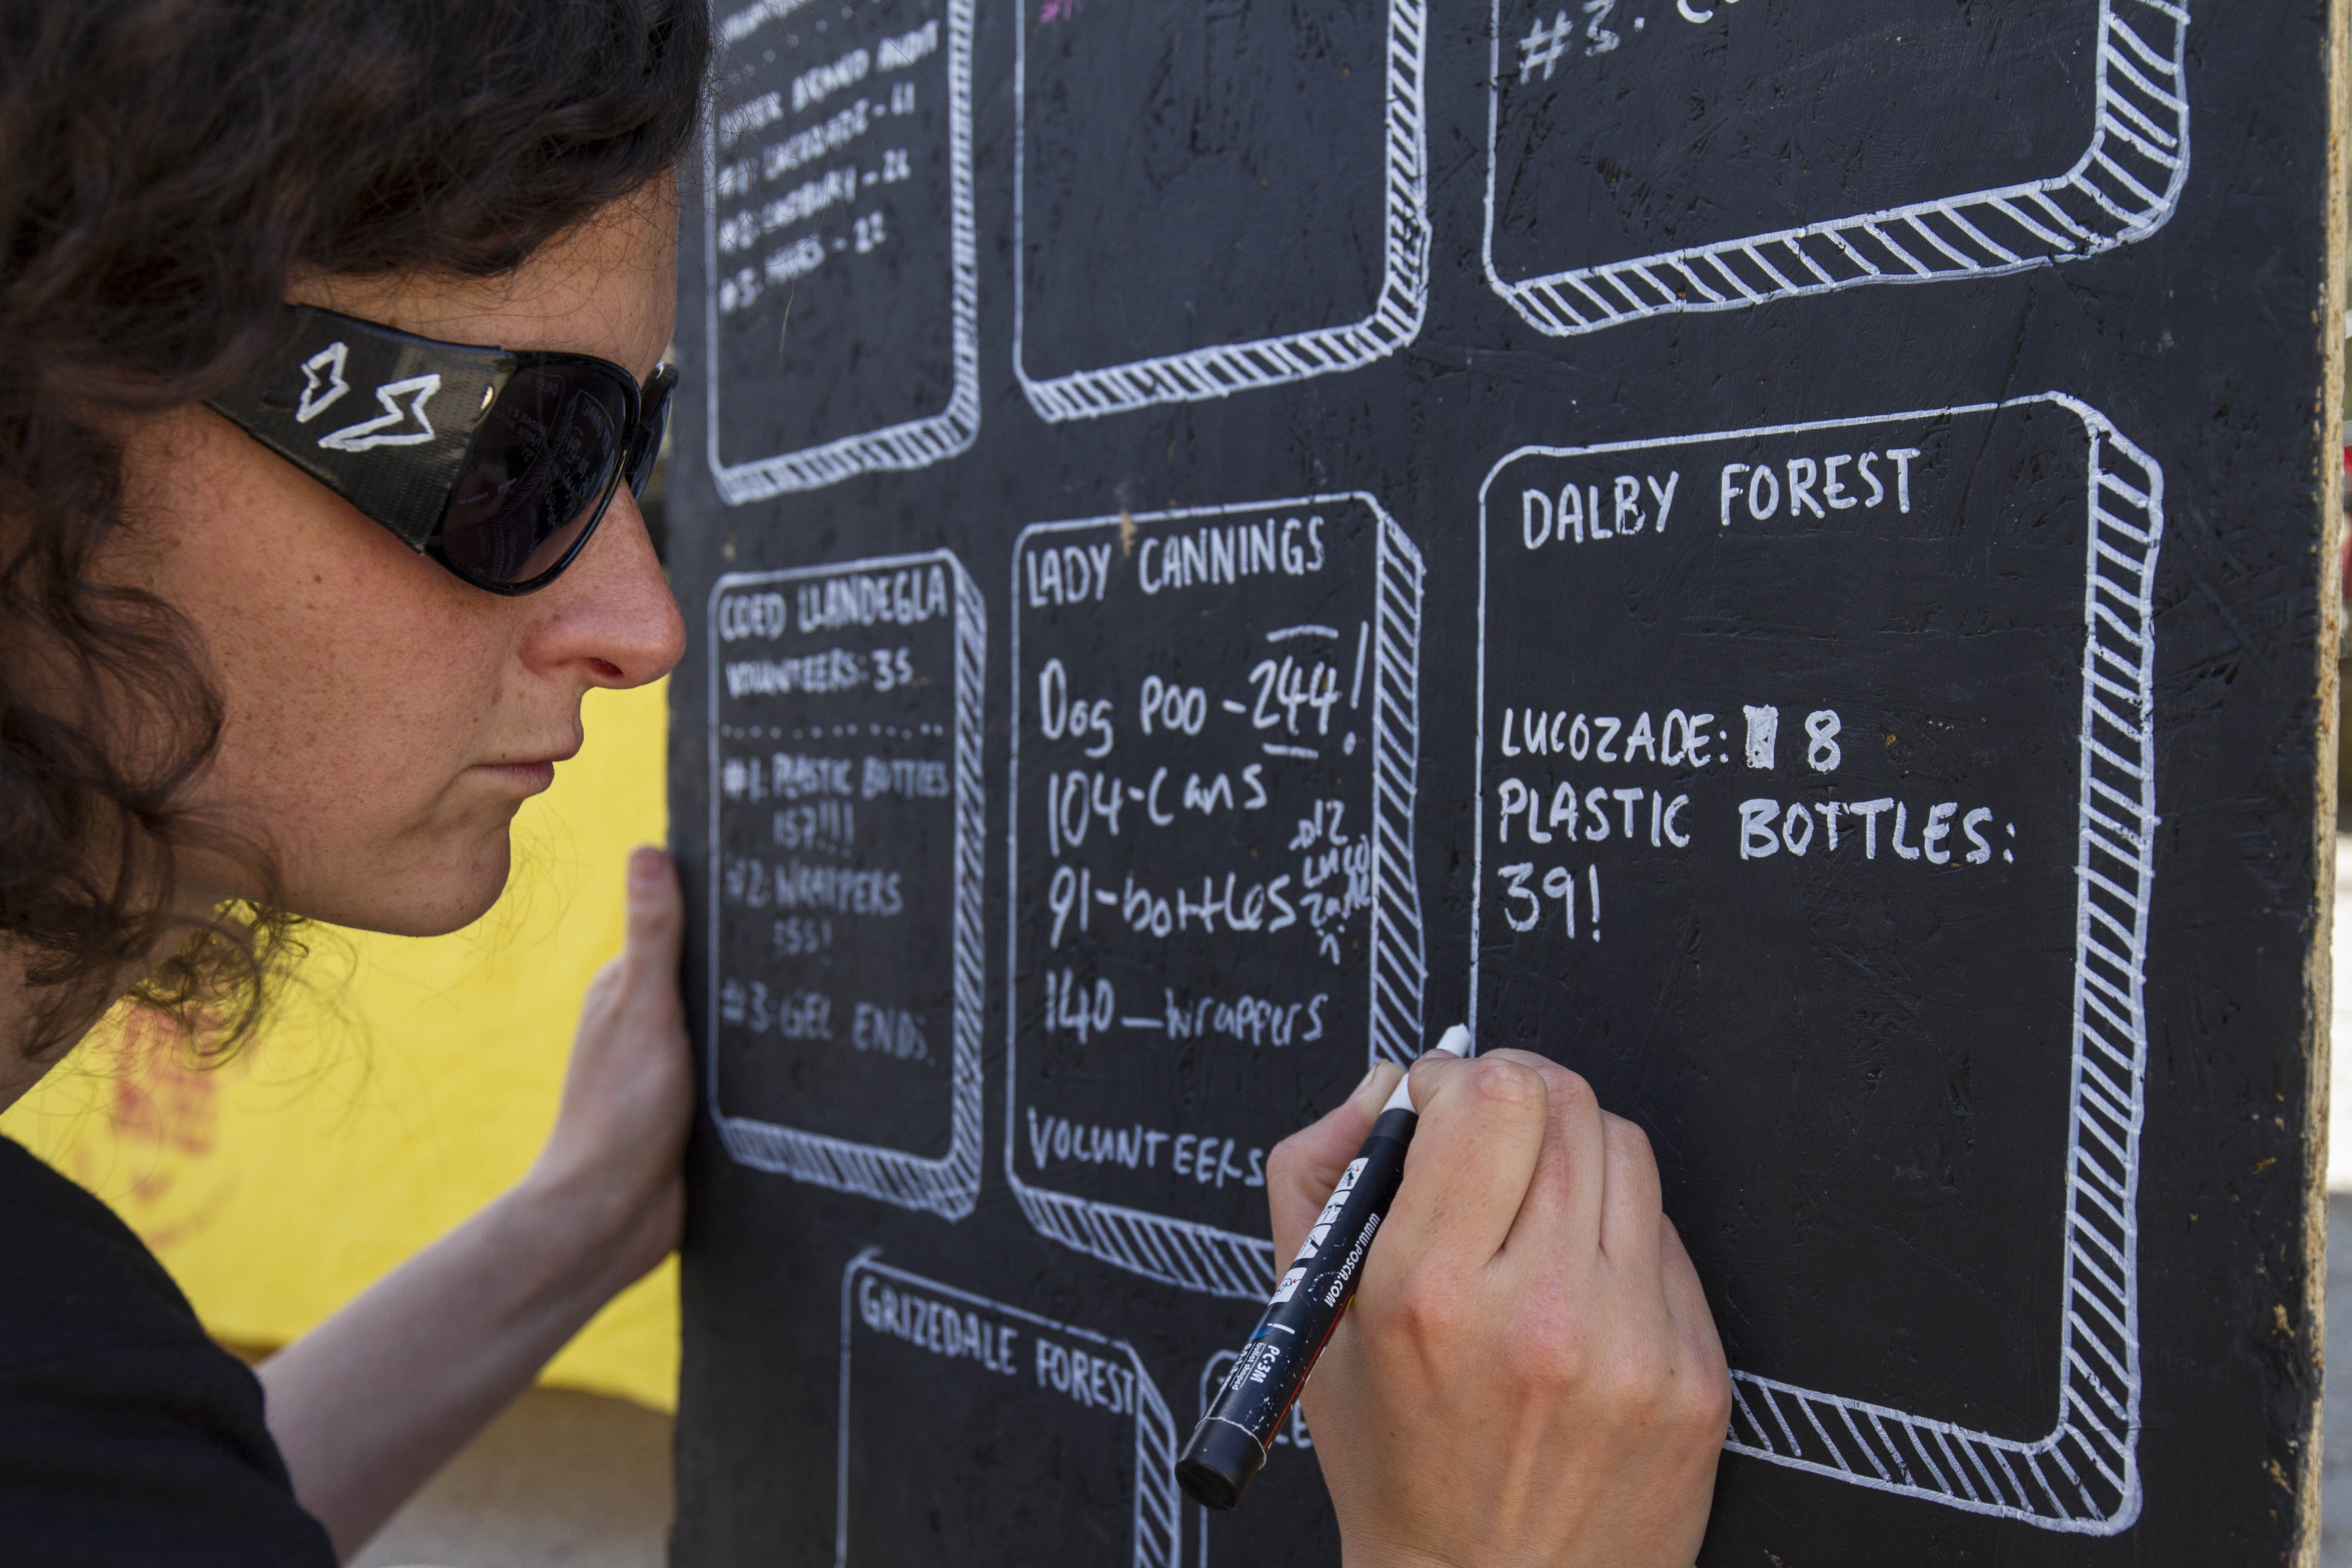 BRAND AUDIT
#1: LUCOZADE - 41
#2: CADBURY - 26
#3: MARS - 22
#3.
COED LLANDEGLA
VOLUNTEERS: 35
#1: PLASTIC BOTTLES
157!!!
#2: WRAPPERS
#3: GEL ENDS.
LADY CANNINGS
Dog Poo - 244!
104 - Cans
91 - bottles
012
Luco
Zade
140 _ wrappers
VOLUNTEERS
DALBY FOREST
LUCOZADE: 8
PLASTIC BOTTLES:
39!
GRIZEDALE FOREST
www.POSCA.COM
PC-3M